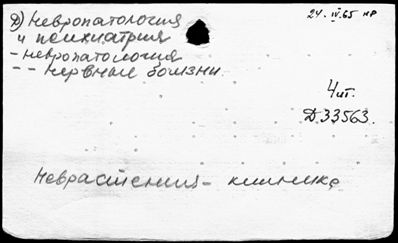 24.IV.65 НР
Д) Невропатология
и психиатрия
- невропатология
-- нервные болезни.
Чит.
Д33563.
Неврастения - клиника